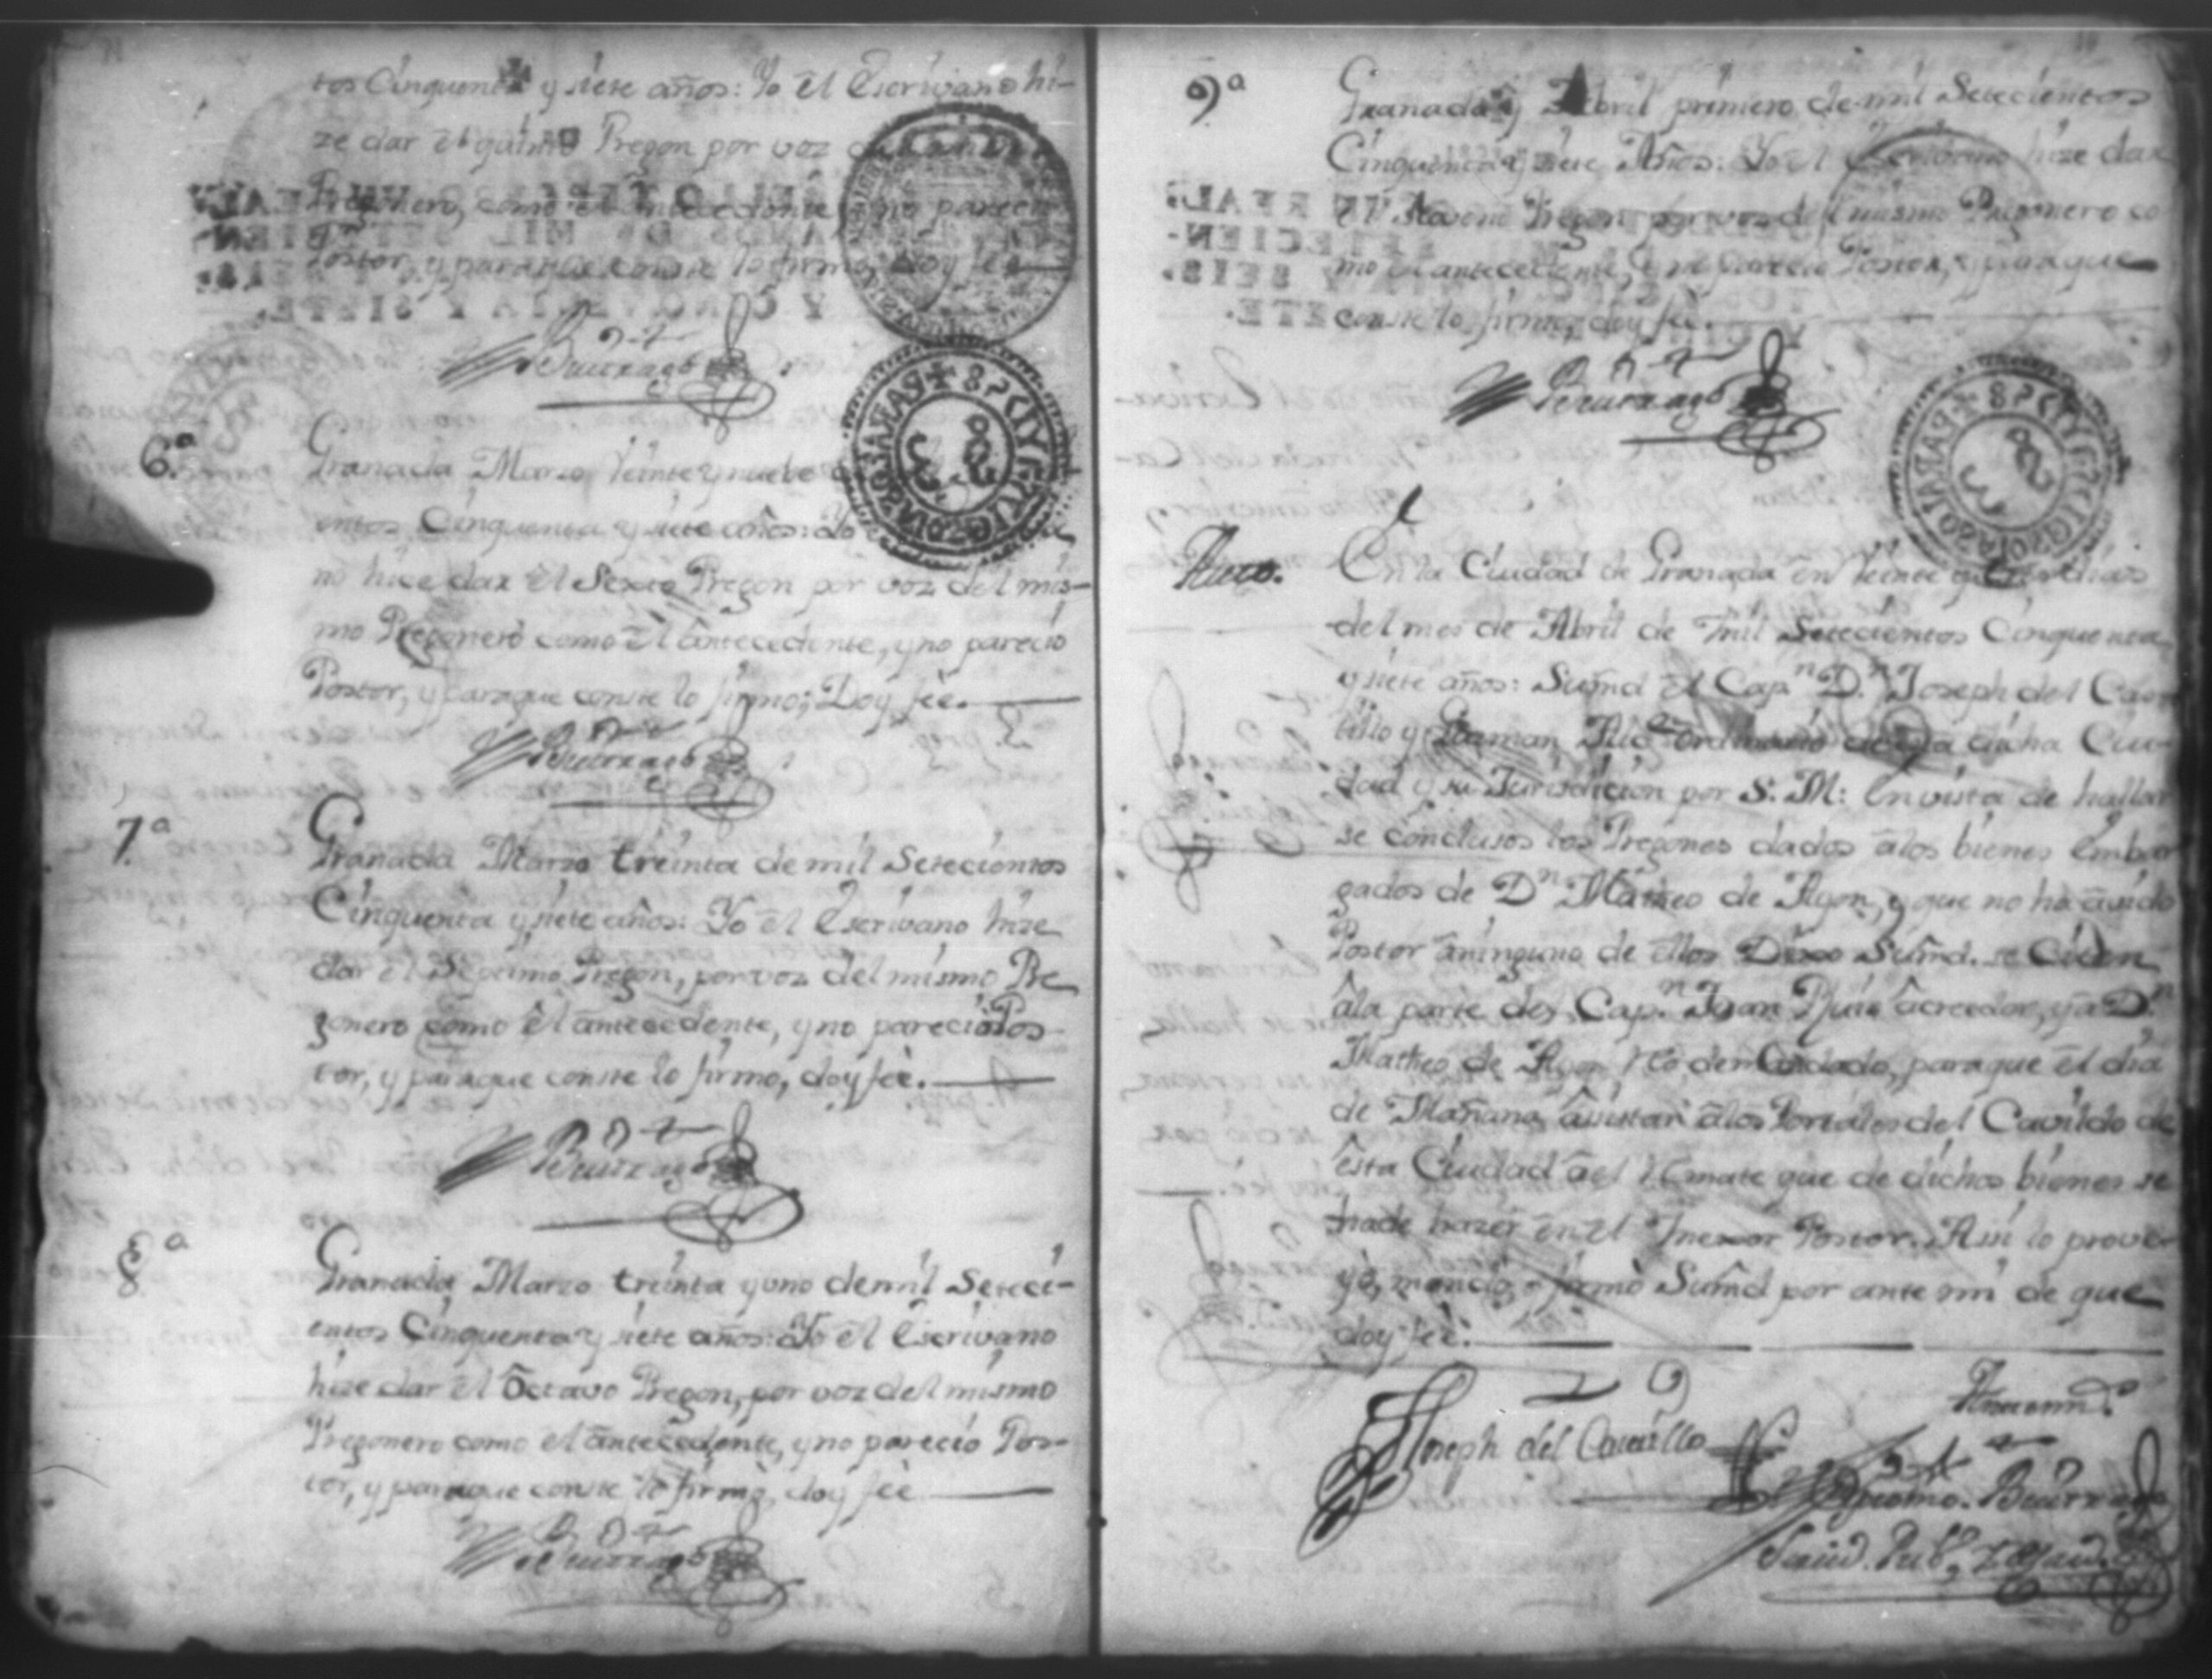 tos Cinquenta y siete años: Yo êl Escrivano hi-
ze dar êl quinto Pregon por voz
Pregonero, como êl antecedente y no pareciò
Postor, y paraque conste lo firmo, doy feè
Buitrago
6.ª
Granada Marzo Veinte y nueve
entos Cinquenta y siete años: Yo
no hice dar êl Sexto Pregon por voz del mis-
mo Pregonero como êl antecedente, y no pareciò
Postor, y paraque conste lo firmo; Doy feè.
Buitrago
7.ª
Granada Marzo treinta de mil Setecientos
Cinquenta y siete años: Yo êl Escrivano hize
dar êl Septimo Pregon, por voz del mismo Pre
gonero como êl antecedente, y no pareciò Pos-
tor, y paraque conste lo firmo, doy feè.
Buitrago
8.ª
Granada Marzo treinta y uno de mil Seteci-
entos Cinquenta y siete años: Yo êl Escrivano
hize dar êl Octavo Pregon, por voz del mismo
Pregonero como êl antecedente, y no pareciò Pos-
tor, y paraque conste lo firmo, doy feè
Buitrago
9.ª
Granada y Abril primero de mil Setecientos
Cinquenta y siete Años: Yo el Escrivano hize dar
êl Noveno Pregon por voz del mismo Pregonero co
mo êl antecedente, y no pareciò Postor, y paraque
conste lo firmo, doy feè.
Buitrago
Auto.
En la Ciudad de Granada en Veinte y tres dias
del mes de Abril de mil Setecientos Cinquenta
y siete años: Sumd êl Capn Dn Joseph del Cas
tillo y Guzman Alce ordinario de êsta dicha Ciu-
dad y su Jurisdiccion por S. M: En vista de hallar
se conclusos los Pregones dados âlos bienes Embar
gados de Dn Matheo de Ayon, y que no ha avido
Postor âninguno de êllos Dixo Sumd. se Citen
âla parte del Capn Juan Ruis âcreedor, y a Dn
Matheo de Ayon Reo demandado, paraque êl dia
de Mañana âsistan âlos Portales del Cavildo de
êsta Ciudad âel Remate que de dichos bienes se
hade hazer en el mexor Postor. Asi lo prove-
yò, mandò, y firmò Sumd por ante mi de que
doy feè:
Joseph del Castillo
Ante mi
Buitrago
Scriud. Pubo